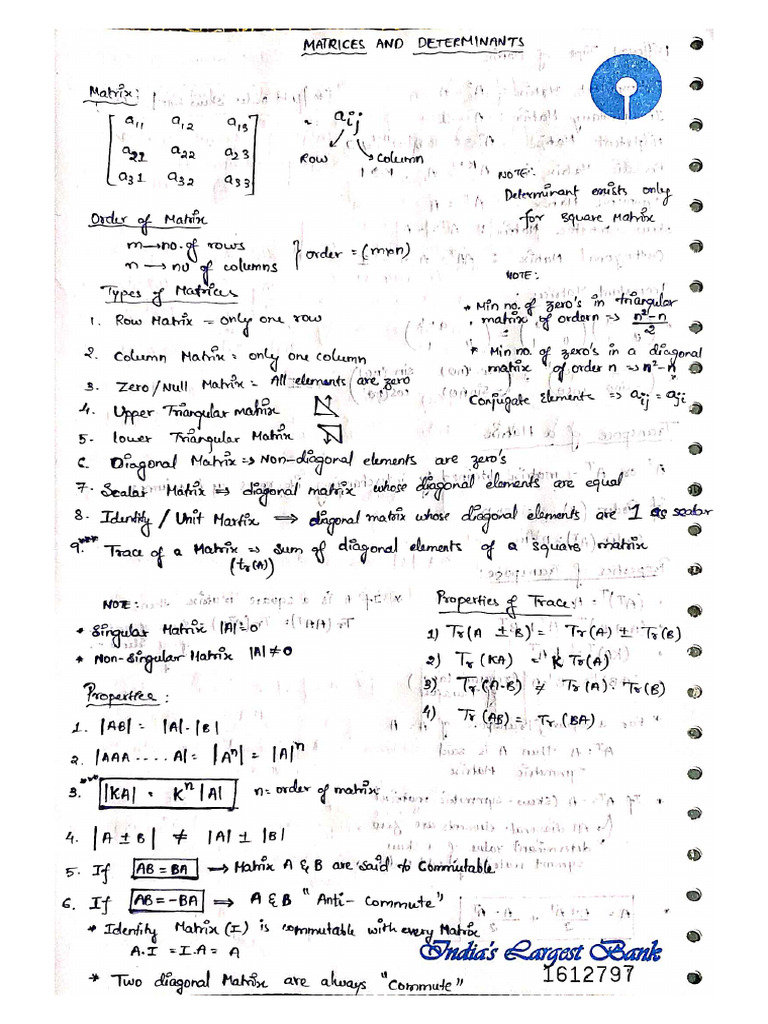 MATRICES AND DETERMINANTS
Matrix:
a11 a12 a13
a21 a22 a23
a31 a32 a33
~ aij
Row Column
NOTE:
Determinant exists only
for square Matrix
Order of Matrix
m → no. of rows
n → no of columns
} order = (m×n)
Types of Matrices
NOTE:
* Min no. of zero's in triangular
matrix of order n ⇒ n²-n / 2
* Min no. of zero's in a diagonal
matrix of order n ⇒ n²-n
Conjugate Elements ⇒ aij = aji
1. Row Matrix = only one row
2. Column Matrix = only one column
3. Zero/Null Matrix = All elements are zero
4. Upper Triangular matrix
5. Lower Triangular Matrix
6. Diagonal Matrix ⇒ Non-diagonal elements are zero's
7. Scalar Matrix ⇒ diagonal matrix whose diagonal elements are equal
8. Identity / Unit Martix ⇒ diagonal matrix whose diagonal elements are 1 as scalar
9.*** Trace of a Matrix ⇒ sum of diagonal elements of a square matrix
(tr(A))
NOTE:
* Singular Matrix |A|=0
* Non-singular Matrix |A|≠0
Properties of Trace:
1) Tr(A ± B) = Tr(A) ± Tr(B)
2) Tr(KA) = K Tr(A)
3) Tr(A·B) ≠ Tr(A) · Tr(B)
4) Tr(AB) = Tr(BA)
Properties:
1. |AB| = |A|·|B|
2. |AAA.....A| = |Aⁿ| = |A|ⁿ
3.*** |KA| = Kⁿ|A| n = order of matrix
4. |A ± B| ≠ |A| ± |B|
5. If AB = BA → Matrix A & B are said to Commutable
6. If AB = -BA ⇒ A & B "Anti-Commute"
* Identity Matrix (I) is commutable with every Matrix
A.I = I.A = A
* Two diagonal Matrix are always "Commute"
India's Largest Bank
1612797